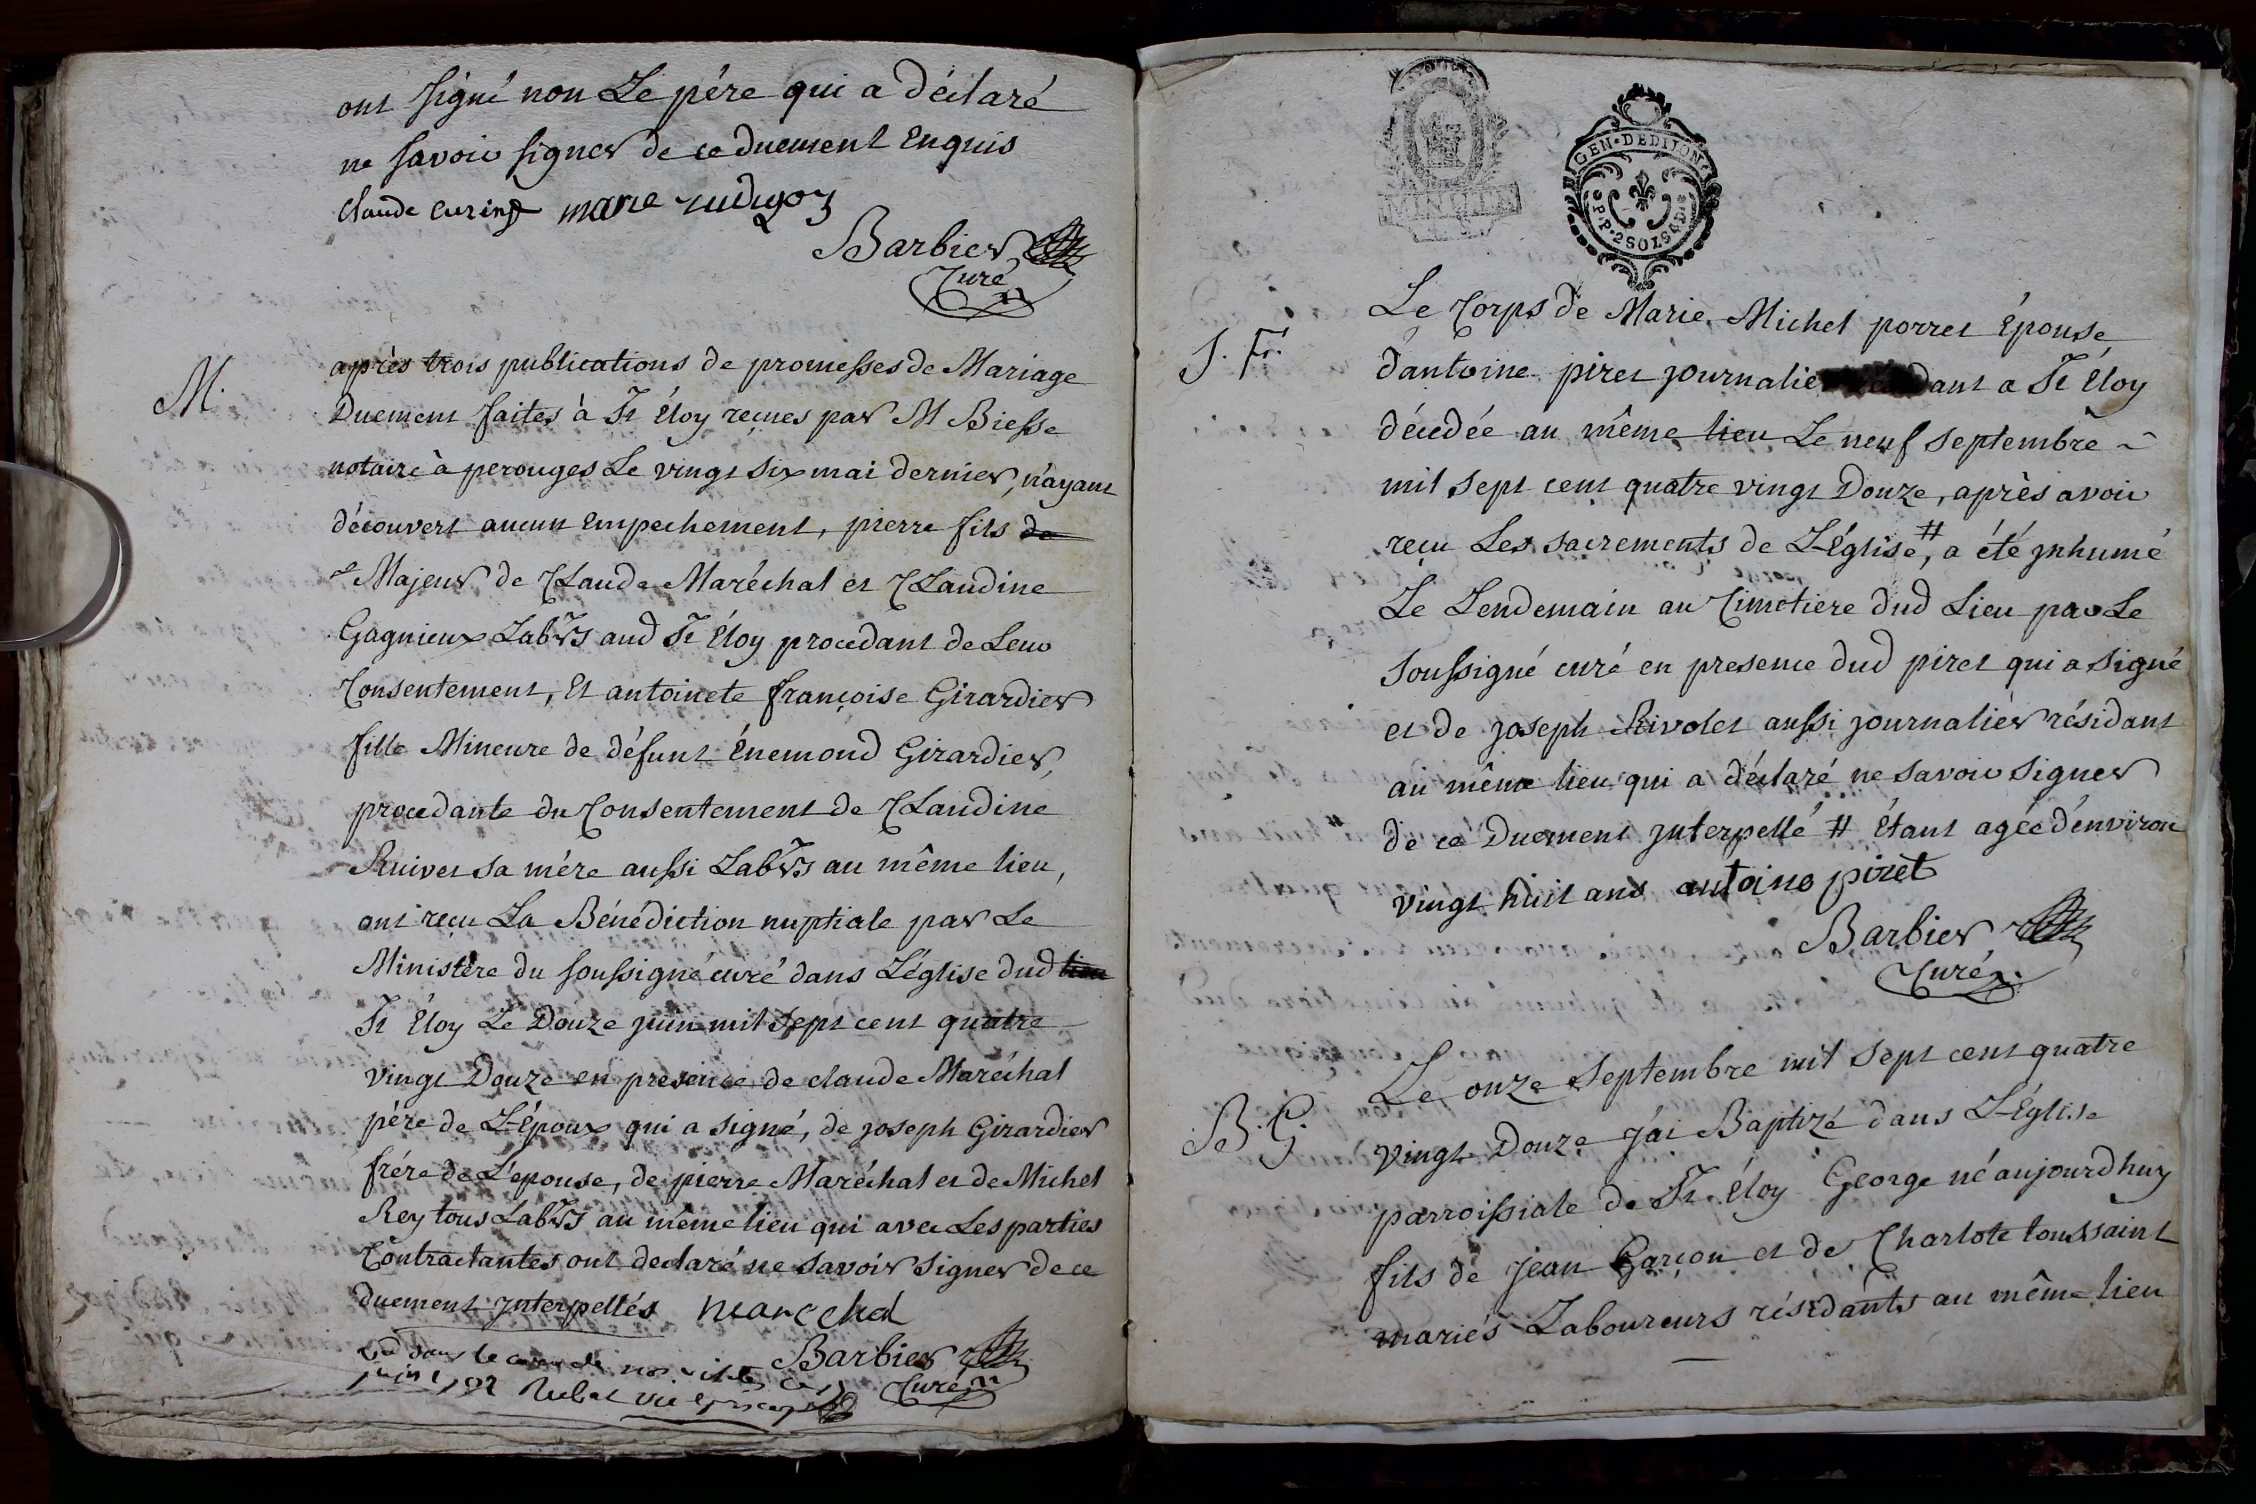 ont signé non Le père qui a déclaré
ne savoir signer de ce duement Enquis
Claude eurinp marie rudigoz
Barbier
Curé
M.
après trois publications de promesses de Mariage
Duement faites à St Éloy reçues par M Biesse
notaire à perouges Le vingt six mai dernier, n'ayant
découvert aucun Empechement, pierre fils de
Majeur de Claude Maréchal et Claudine
Gagnieux Labrs aud St Éloy procedant de Leur
Consentement, Et antoinete françoise Girardier
fille Mineure de défunt Énemond Girardier,
procedante du Consentement de Claudine
Ruivet sa mére aussi Labrs au même lieu,
ont reçu La Bénédiction nuptiale par Le
Ministère du soussigné curé dans L'église dud lieu
St Éloy Le Douze juin mil sept cent quatre
vingt Douze en presence de claude Maréchal
père de L'Époux qui a signé, de joseph Girardier
frére de L'epouse, de pierre Maréchal et de Michel
Rey tous Labrs au même lieu qui avec Les parties
Contractantes ont declaré ne savoir signer de ce
duement jnterpellés marechal
Barbier
Curé
vû dans le cours de nos visites ce 19
juin 1792
MINUTE
GEN·DEDIJON
P.P·2SOLS4D·
S. F.
Le Corps de Marie Michel porret Épouse
d'antoine piret journalier résidant a St Éloy
décedée au même lieu Le neuf septembre
mil sept cent quatre vingt Douze, après avoir
reçu Les sacrements de L'Église #, a été jnhumé
Le Lendemain au Cimetiere dud Lieu par Le
soussigné curé en presence dud piret qui a signé
et de joseph Rivolet aussi journalier résidant
au même lieu qui a déclaré ne savoir signer
de ce Duement jnterpellé # Étant agée d'environ
vingt huit ans antoine piret
Barbier
Curé
B. G.
Le onze septembre mil sept cent quatre
vingt Douze j'ai Baptizé dans L'Église
parroissiale de St. Éloy George né aujourdhuy
fils de jean Garçon et de Charlote toussaint
mariés Laboureurs résidants au même lieu